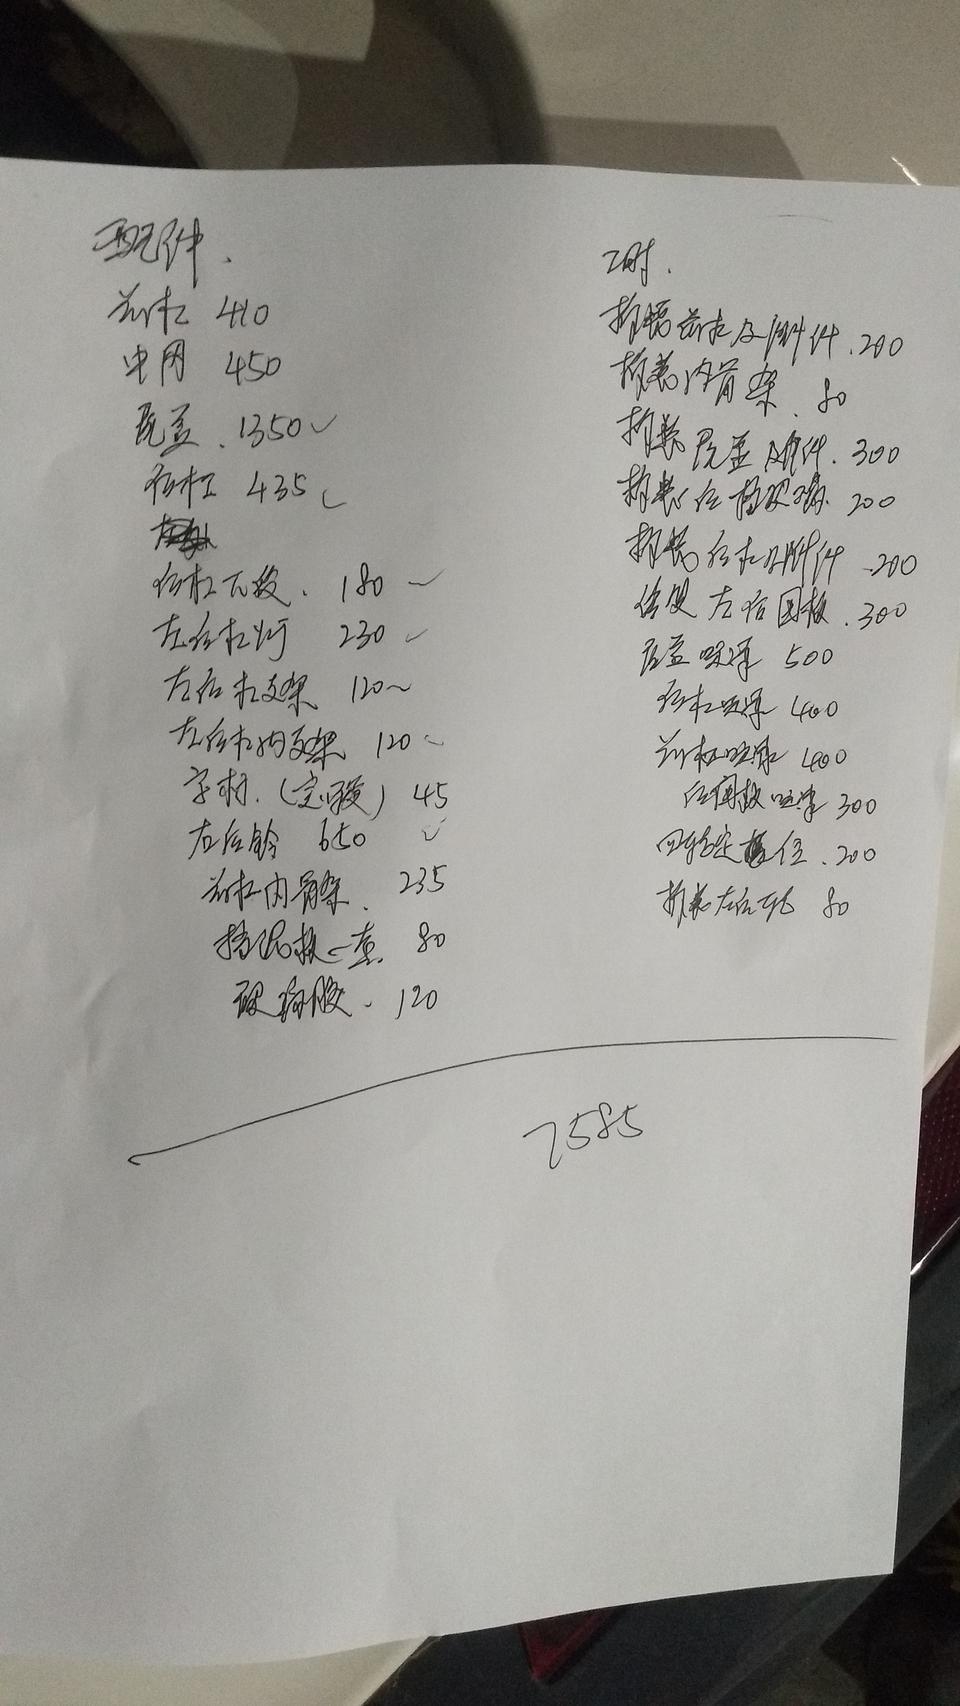 配件.
前杠 410
中网 450
尾盖. 1350✓
后杠 435✓
后杠下段. 180
左后杠灯 230
左后杠支架 120
左后杠内支架 120
字标.(宝骏) 45
左后铃 650
前杠内骨架. 235
挡泥板一套 80
120
工时.
拆装前杠及附件.200
拆装内骨架.80
拆装尾盖及附件.300
拆装后挡玻璃 200
拆装后杠及附件 200
修复左后围板.300
尾盖喷漆 500
后杠喷漆 400
前杠喷漆 400
后围板喷漆 300
四轮定位.200
拆装左后 80
7585